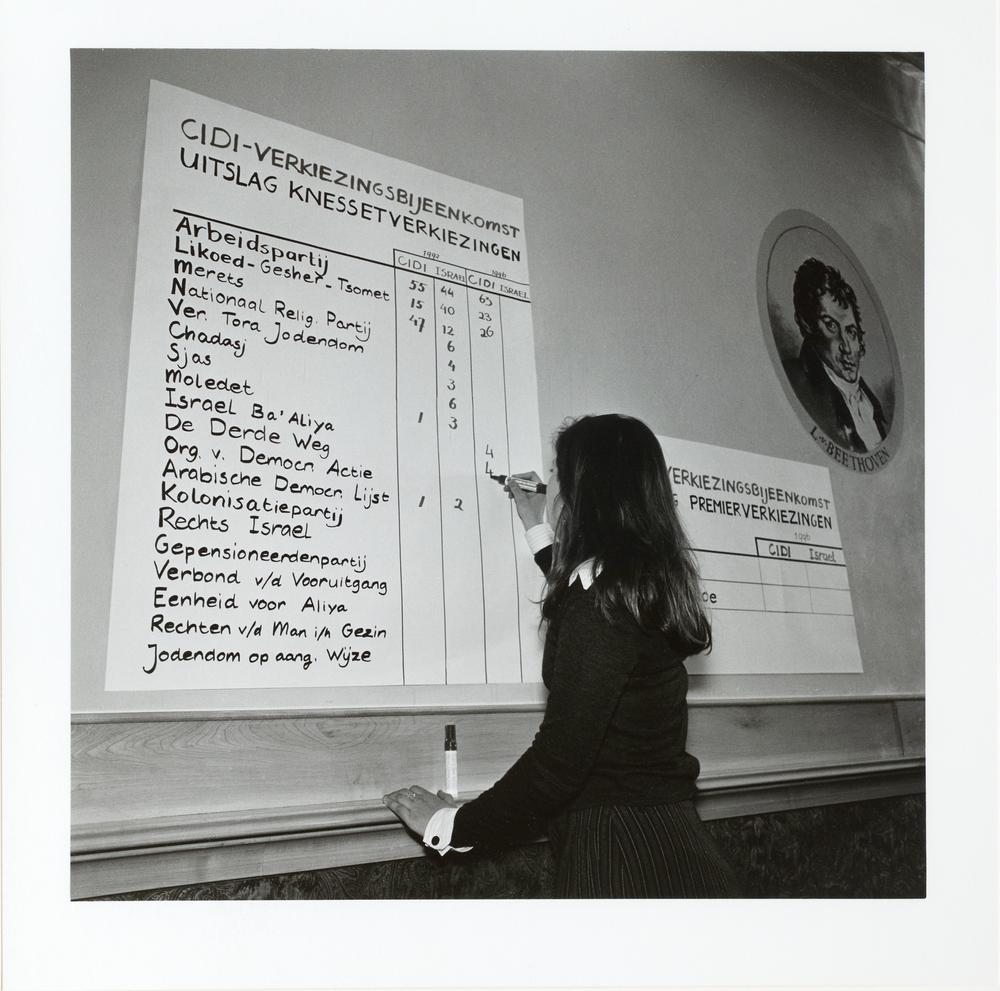 CIDI-VERKIEZINGSBIJEENKOMST
UITSLAG KNESSETVERKIEZINGEN
1992 1996
CIDI ISRAEL CIDI ISRAEL
Arbeidspartij 55 44 65
Likoed-Gesher-Tsomet 15 40 23
Merets 47 12 26
Nationaal Relig. Partij 6
Ver. Tora Jodendom 4
Chadasj 3
Sjas 6
Moledet 1 3
Israel Ba'Aliya 4
De Derde Weg 4
Org. v. Democr. Actie
Arabische Democr. Lijst 1 2
Kolonisatiepartij
Rechts Israel
Gepensioneerdenpartij
Verbond v/d Vooruitgang
Eenheid voor Aliya
Rechten v/d Man i/h Gezin
Jodendom op aang. Wijze
VERKIEZINGSBIJEENKOMST
PREMIERVERKIEZINGEN
1996
CIDI Israel
de
L.v.BEETHOVEN